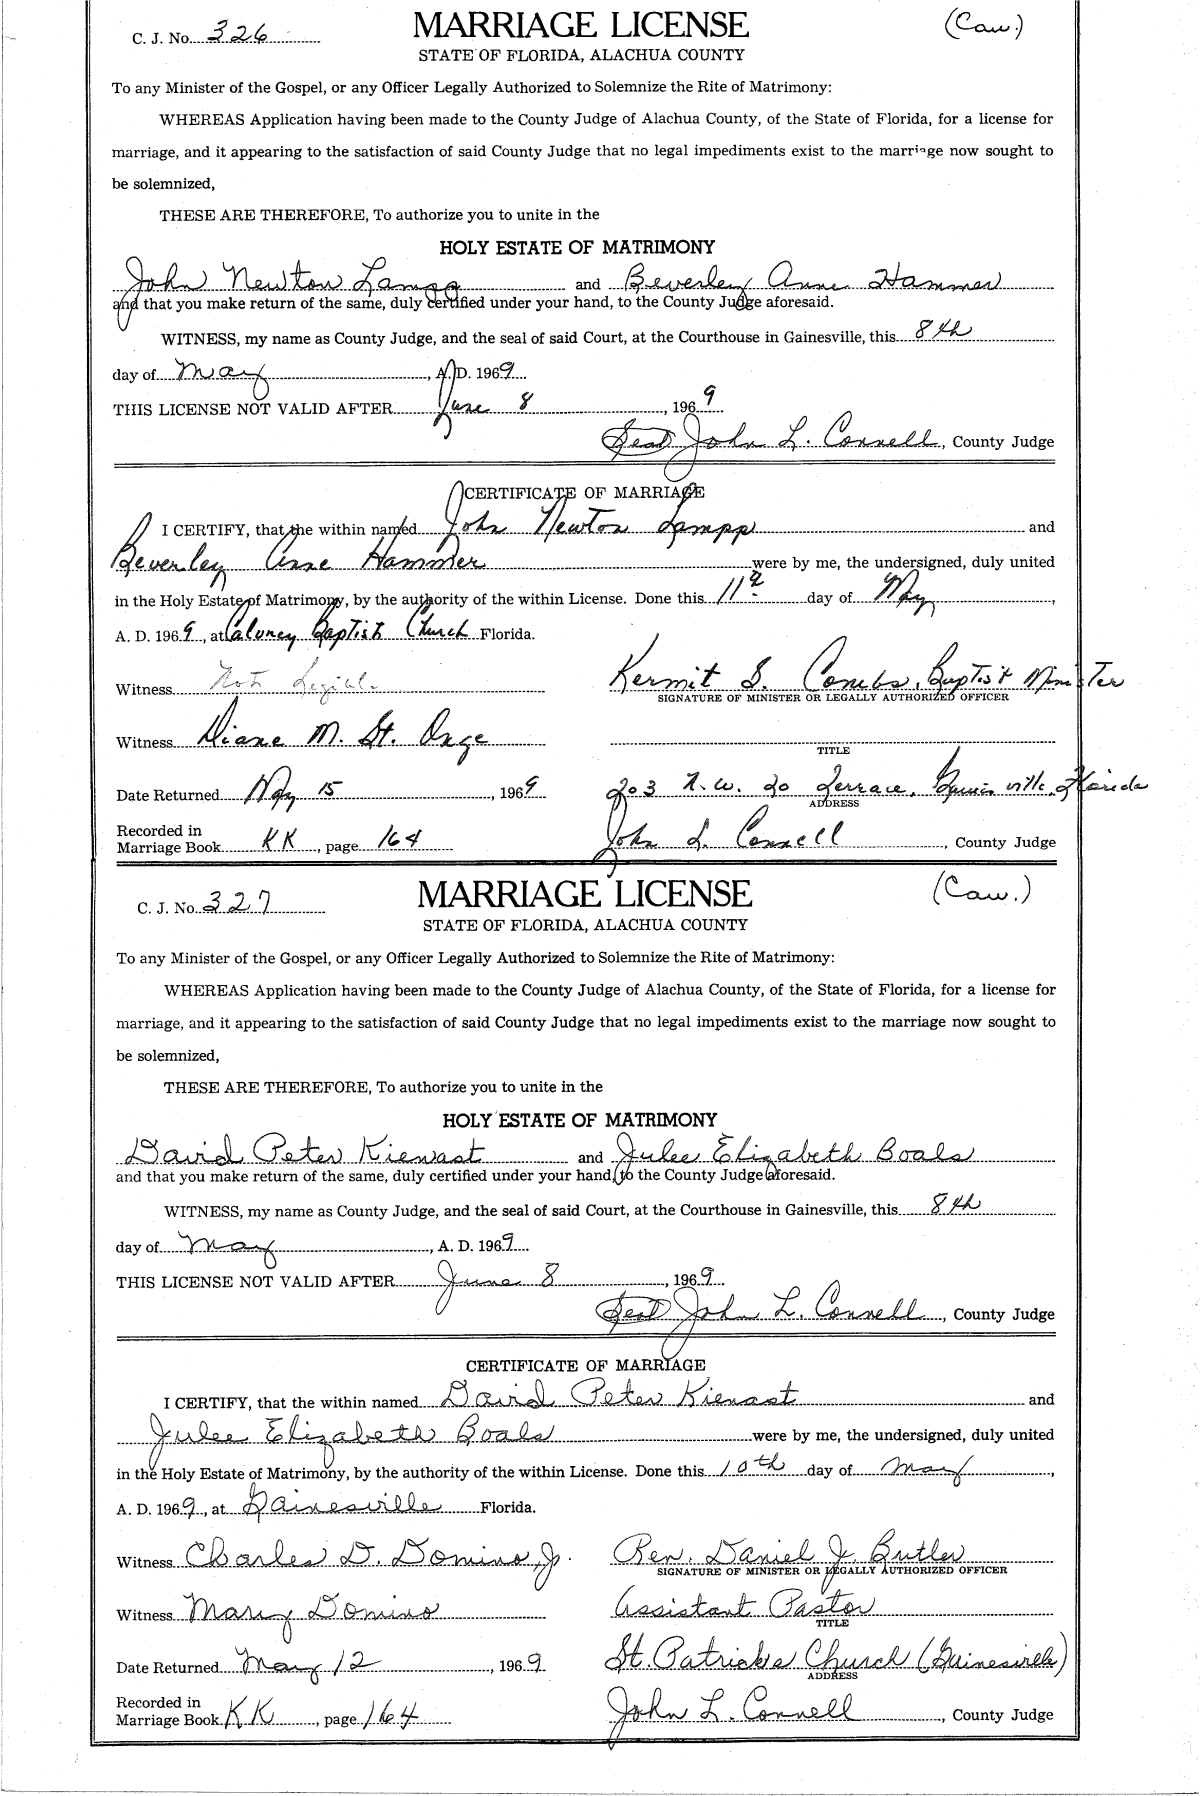 C. J. No. 326
MARRIAGE LICENSE
(Cau.)
STATE OF FLORIDA, ALACHUA COUNTY
To any Minister of the Gospel, or any Officer Legally Authorized to Solemnize the Rite of Matrimony:
WHEREAS Application having been made to the County Judge of Alachua County, of the State of Florida, for a license for
marriage, and it appearing to the satisfaction of said County Judge that no legal impediments exist to the marriage now sought to
be solemnized,
THESE ARE THEREFORE, To authorize you to unite in the
HOLY ESTATE OF MATRIMONY
John Newton Lampp and Beverley Anne Hammer
and that you make return of the same, duly certified under your hand, to the County Judge aforesaid.
WITNESS, my name as County Judge, and the seal of said Court, at the Courthouse in Gainesville, this 8th
day of May, A. D. 1969
THIS LICENSE NOT VALID AFTER June 8, 1969
Seal John L. Connell, County Judge
CERTIFICATE OF MARRIAGE
I CERTIFY, that the within named John Newton Lampp and
Beverley Anne Hammer were by me, the undersigned, duly united
in the Holy Estate of Matrimony, by the authority of the within License. Done this 11th day of May,
A. D. 1969, at Calvary Baptist Church Florida.
Witness Not Legible
Kermit S. Combs, Baptist Minister
SIGNATURE OF MINISTER OR LEGALLY AUTHORIZED OFFICER
Witness Diane M. St. Onge
TITLE
Date Returned May 15, 1969
203 N.W. 20 Terrace, Gainesville, Florida
ADDRESS
Recorded in
Marriage Book KK, page 164
John L. Connell, County Judge
C. J. No. 327
MARRIAGE LICENSE
(Cau.)
STATE OF FLORIDA, ALACHUA COUNTY
To any Minister of the Gospel, or any Officer Legally Authorized to Solemnize the Rite of Matrimony:
WHEREAS Application having been made to the County Judge of Alachua County, of the State of Florida, for a license for
marriage, and it appearing to the satisfaction of said County Judge that no legal impediments exist to the marriage now sought to
be solemnized,
THESE ARE THEREFORE, To authorize you to unite in the
HOLY ESTATE OF MATRIMONY
David Peter Kienast and Julee Elizabeth Boals
and that you make return of the same, duly certified under your hand, to the County Judge aforesaid.
WITNESS, my name as County Judge, and the seal of said Court, at the Courthouse in Gainesville, this 8th
day of May, A. D. 1969
THIS LICENSE NOT VALID AFTER June 8, 1969
Seal John L. Connell, County Judge
CERTIFICATE OF MARRIAGE
I CERTIFY, that the within named David Peter Kienast and
Julee Elizabeth Boals were by me, the undersigned, duly united
in the Holy Estate of Matrimony, by the authority of the within License. Done this 10th day of May,
A. D. 1969, at Gainesville Florida.
Witness Charles D. Domino, Jr.
Rev. Daniel J. Butler
SIGNATURE OF MINISTER OR LEGALLY AUTHORIZED OFFICER
Witness Mary Domino
Assistant Pastor
TITLE
Date Returned May 12, 1969
St. Patrick's Church (Gainesville)
ADDRESS
Recorded in
Marriage Book KK, page 164
John L. Connell, County Judge